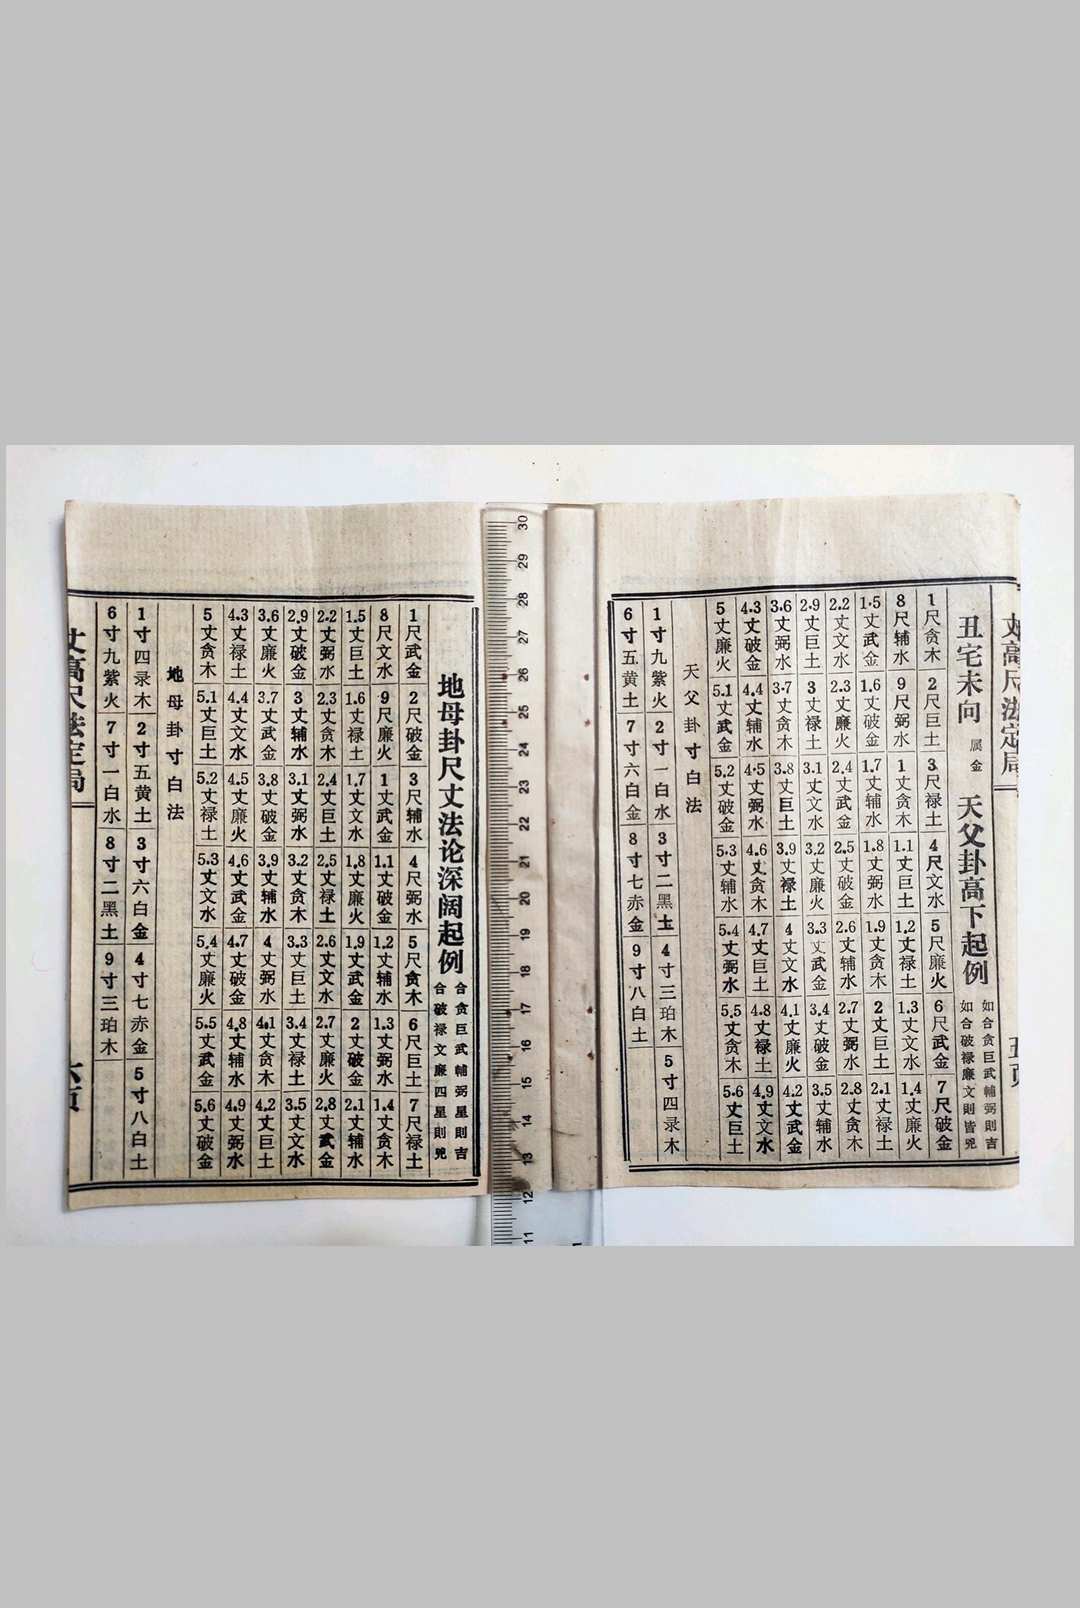 丈高尺法定局 五页
丑宅未向 属金 天父卦高下起例
如合贪巨武輔弼則吉
如合破禄廉文則皆兇
1尺贪木 2尺巨土 3尺禄土 4尺文水 5尺廉火 6尺武金 7尺破金
8尺辅水 9尺弼水 1丈贪木 1.1丈巨土 1.2丈禄土 1.3丈文水 1.4丈廉火
1.5丈武金 1.6丈破金 1.7丈辅水 1.8丈弼水 1.9丈贪木 2丈巨土 2.1丈禄土
2.2丈文水 2.3丈廉火 2.4丈武金 2.5丈破金 2.6丈辅水 2.7丈弼水 2.8丈贪木
2.9丈巨土 3丈禄土 3.1丈文水 3.2丈廉火 3.3丈武金 3.4丈破金 3.5丈辅水
3.6丈弼水 3.7丈贪木 3.8丈巨土 3.9丈禄土 4丈文水 4.1丈廉火 4.2丈武金
4.3丈破金 4.4丈辅水 4.5丈弼水 4.6丈贪木 4.7丈巨土 4.8丈禄土 4.9丈文水
5丈廉火 5.1丈武金 5.2丈破金 5.3丈辅水 5.4丈弼水 5.5丈贪木 5.6丈巨土
天父卦寸白法
1寸九紫火 2寸一白水 3寸二黑土 4寸三珀木 5寸四录木
6寸五黄土 7寸六白金 8寸七赤金 9寸八白土
30 29 28 27 26 25 24 23 22 21 20 19 18 17 16 15 14 13 12 11
地母卦尺丈法论深阔起例
合贪巨武輔弼星則吉
合破禄文廉四星則兇
1尺武金 2尺破金 3尺辅水 4尺弼水 5尺贪木 6尺巨土 7尺禄土
8尺文水 9尺廉火 1丈武金 1.1丈破金 1.2丈辅水 1.3丈弼水 1.4丈贪木
1.5丈巨土 1.6丈禄土 1.7丈文水 1.8丈廉火 1.9丈武金 2丈破金 2.1丈辅水
2.2丈弼水 2.3丈贪木 2.4丈巨土 2.5丈禄土 2.6丈文水 2.7丈廉火 2.8丈武金
2.9丈破金 3丈辅水 3.1丈弼水 3.2丈贪木 3.3丈巨土 3.4丈禄土 3.5丈文水
3.6丈廉火 3.7丈武金 3.8丈破金 3.9丈辅水 4丈弼水 4.1丈贪木 4.2丈巨土
4.3丈禄土 4.4丈文水 4.5丈廉火 4.6丈武金 4.7丈破金 4.8丈辅水 4.9丈弼水
5丈贪木 5.1丈巨土 5.2丈禄土 5.3丈文水 5.4丈廉火 5.5丈武金 5.6丈破金
地母卦寸白法
1寸四录木 2寸五黄土 3寸六白金 4寸七赤金 5寸八白土
6寸九紫火 7寸一白水 8寸二黑土 9寸三珀木
丈高尺法定局 六页